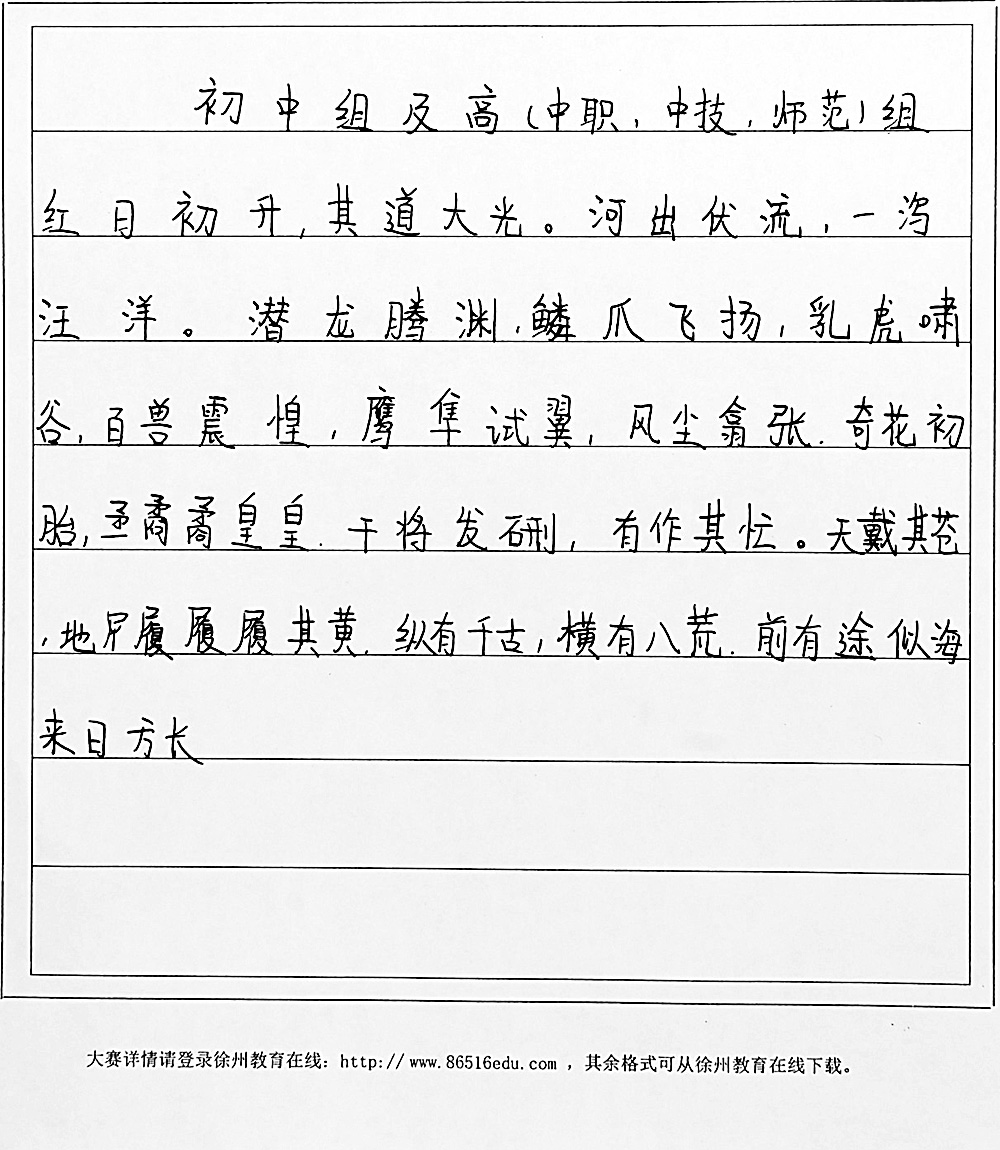 初中组及高(中职,中技,师范)组
红日初升,其道大光。河出伏流,一泻
汪洋。潜龙腾渊,鳞爪飞扬,乳虎啸
谷,百兽震惶,鹰隼试翼,风尘翕张.奇花初
胎,矞矞皇皇.干将发硎,有作其忙。天戴其苍
,地履履履其黄.纵有千古,横有八荒.前有途似海
来日方长
大赛详情请登录徐州教育在线:http://www.86516edu.com ,其余格式可从徐州教育在线下载。